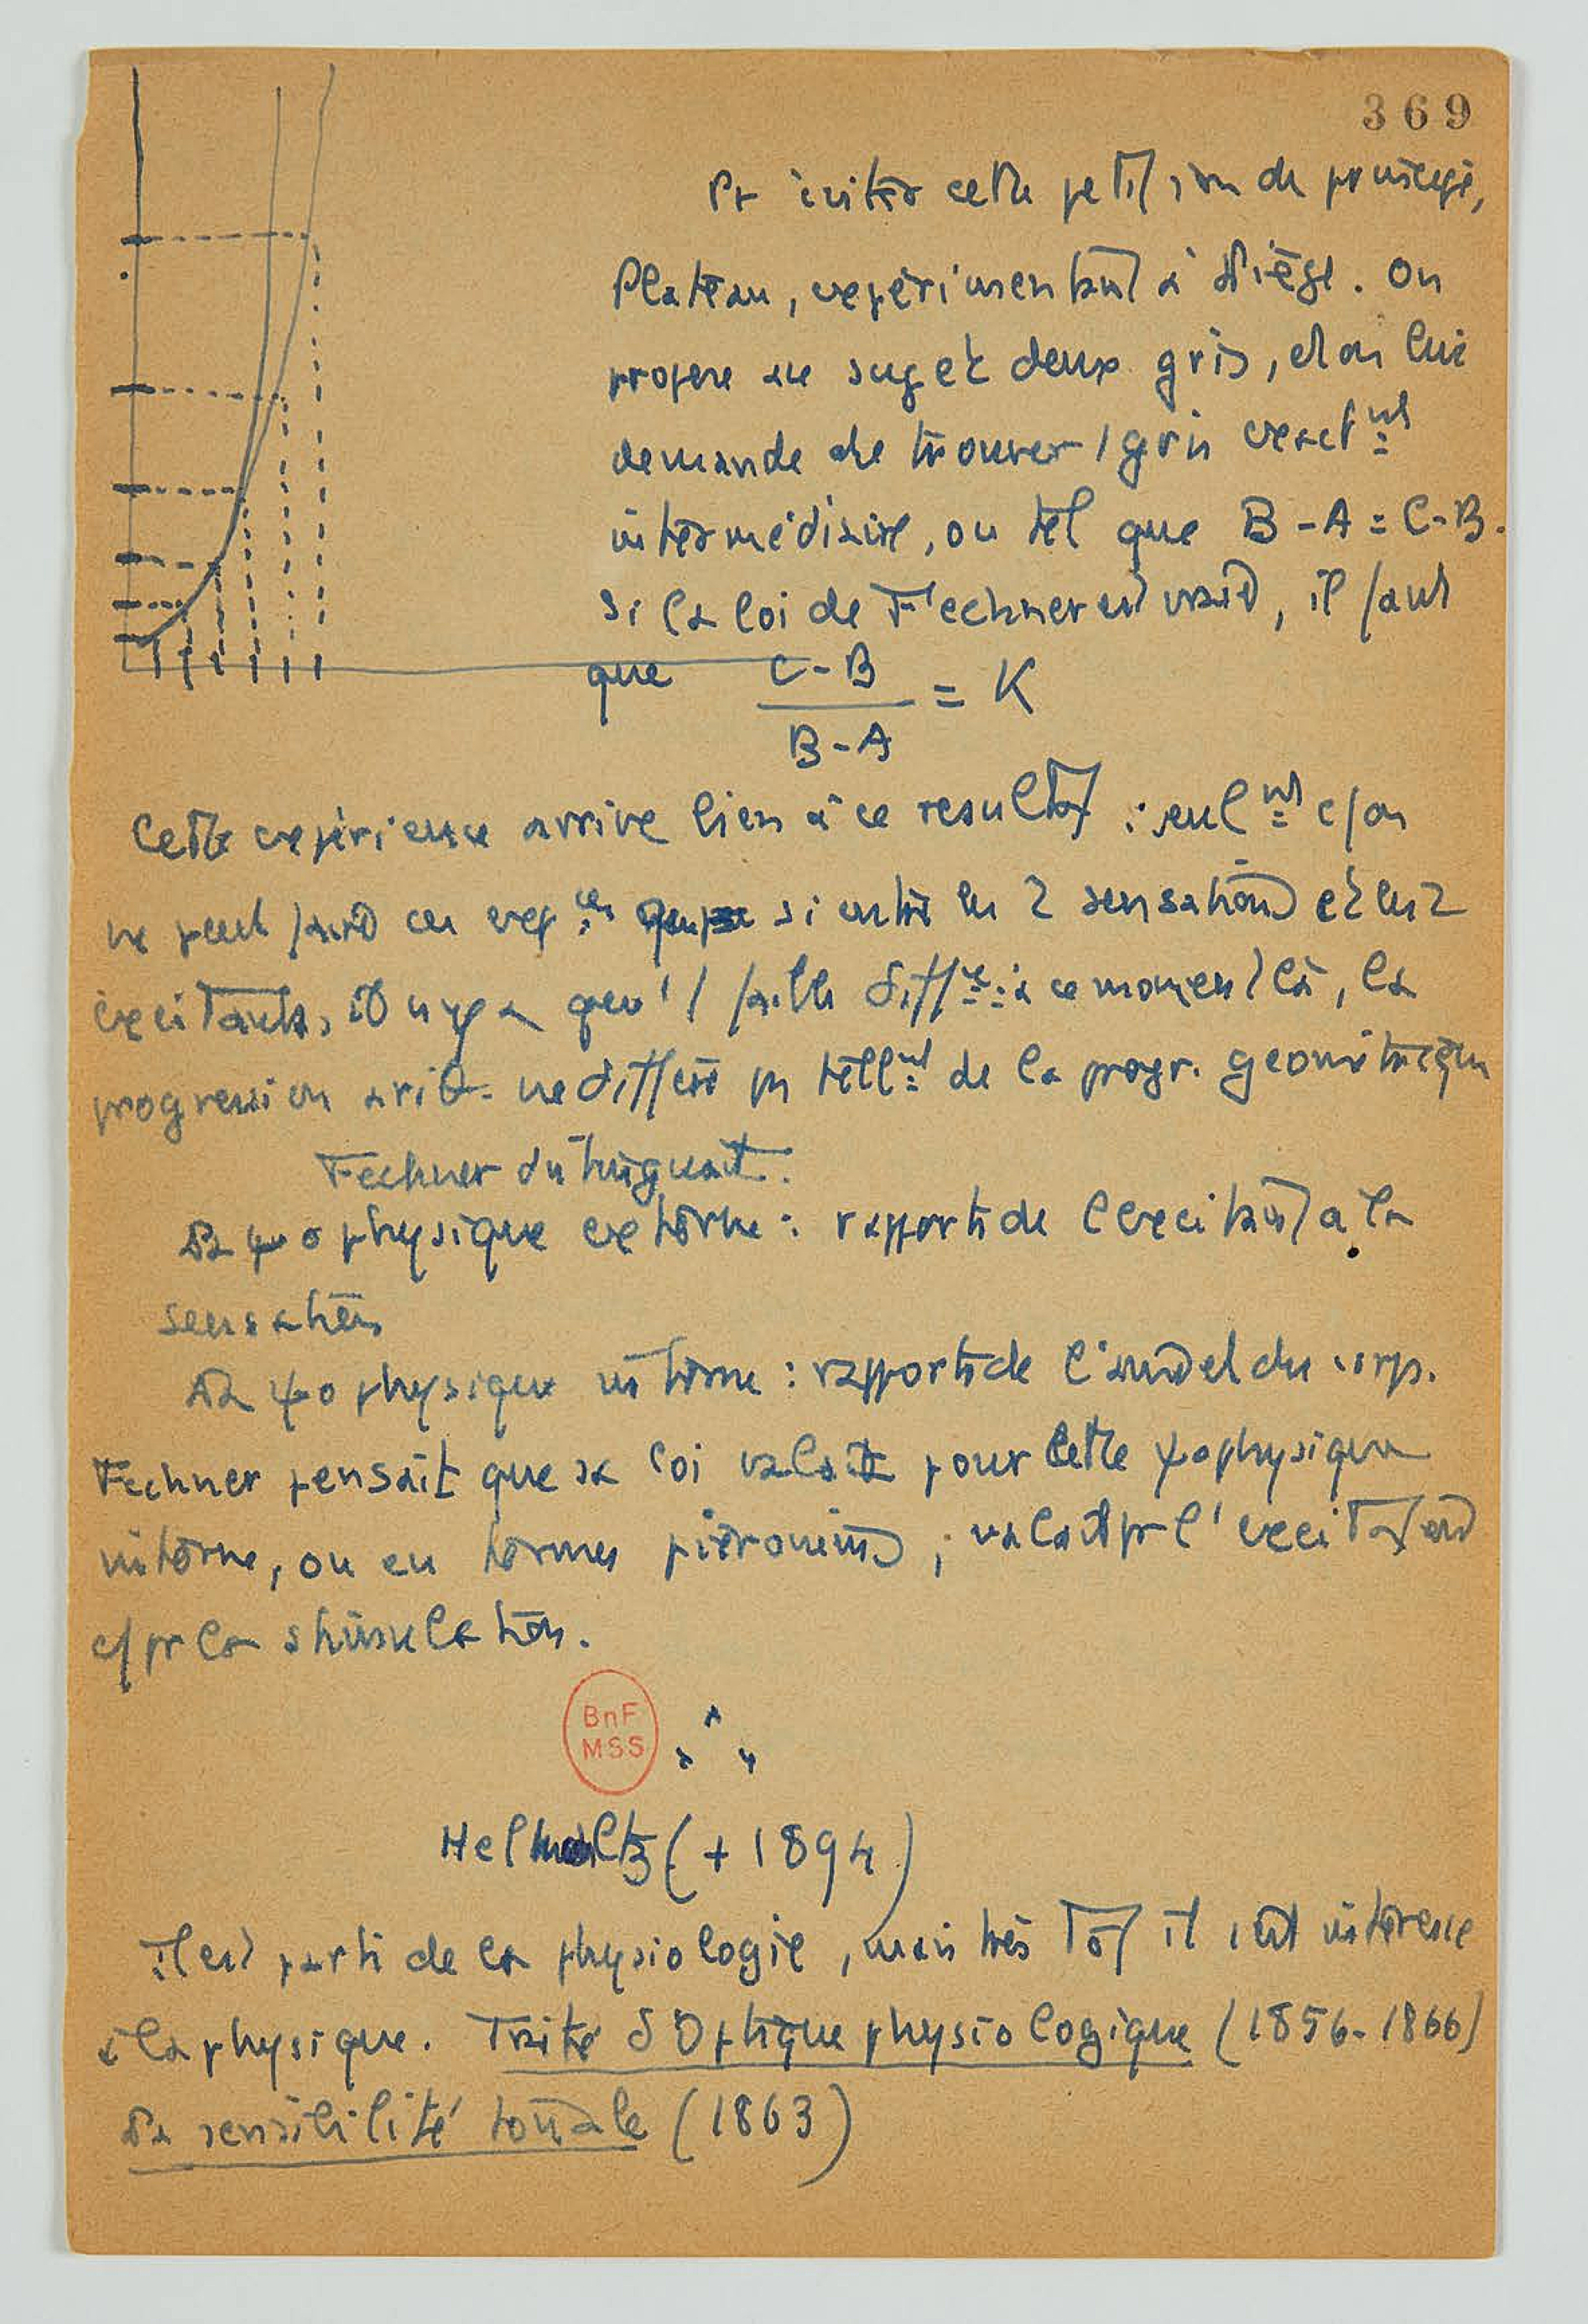 369
Pr éviter cette petition de principe,
Plateau, expérimentant à Liège. On
propose au sujet deux gris, et on lui
demande de trouver 1 gris exactnt
intermédiaire, ou tel que B-A = C-B.
Si la loi de Fechner est vraie, il faut
que C-B / B-A = K
Cette expérience arrive bien à ce resultat : seulnt c/on
ne peut faire ces expces que si entre les 2 sensations et les 2
excitants, il n'y a qu'1 faible diffce : à ce moment là, la
progression arith. ne diffère pas tellnt de la progr. géométrique
Fechner distinguait.
La ψophysique externe : rapports de l'excitant à la
sensation
La ψophysique interne : rapports de l'âme et du corps.
Fechner pensait que sa loi valait pour cette ψophysique
interne, ou en termes ; valait pr l'excitation
c/ pr la stimulation.
BnF
MSS
Helmholtz (+ 1894)
Il est parti de la physiologie, mais très tôt il s'est intéressé
à la physique. Traité d'Optique physiologique (1856-1866)
La sensibilité tonale (1863)